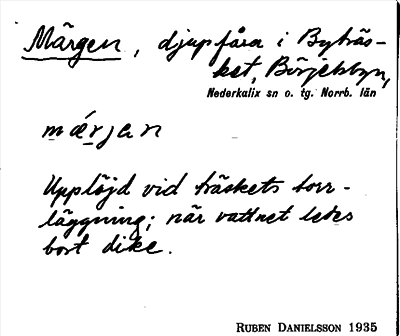 Märgen, djupfåra i Byträs-
ket, Börjelsbyn,
Nederkalix sn o. tg. Norrb. län
mǽrjan
Upplöjd vid träskets torr-
läggning; när vattnet letes
bort dike.
RUBEN DANIELSSON 1935